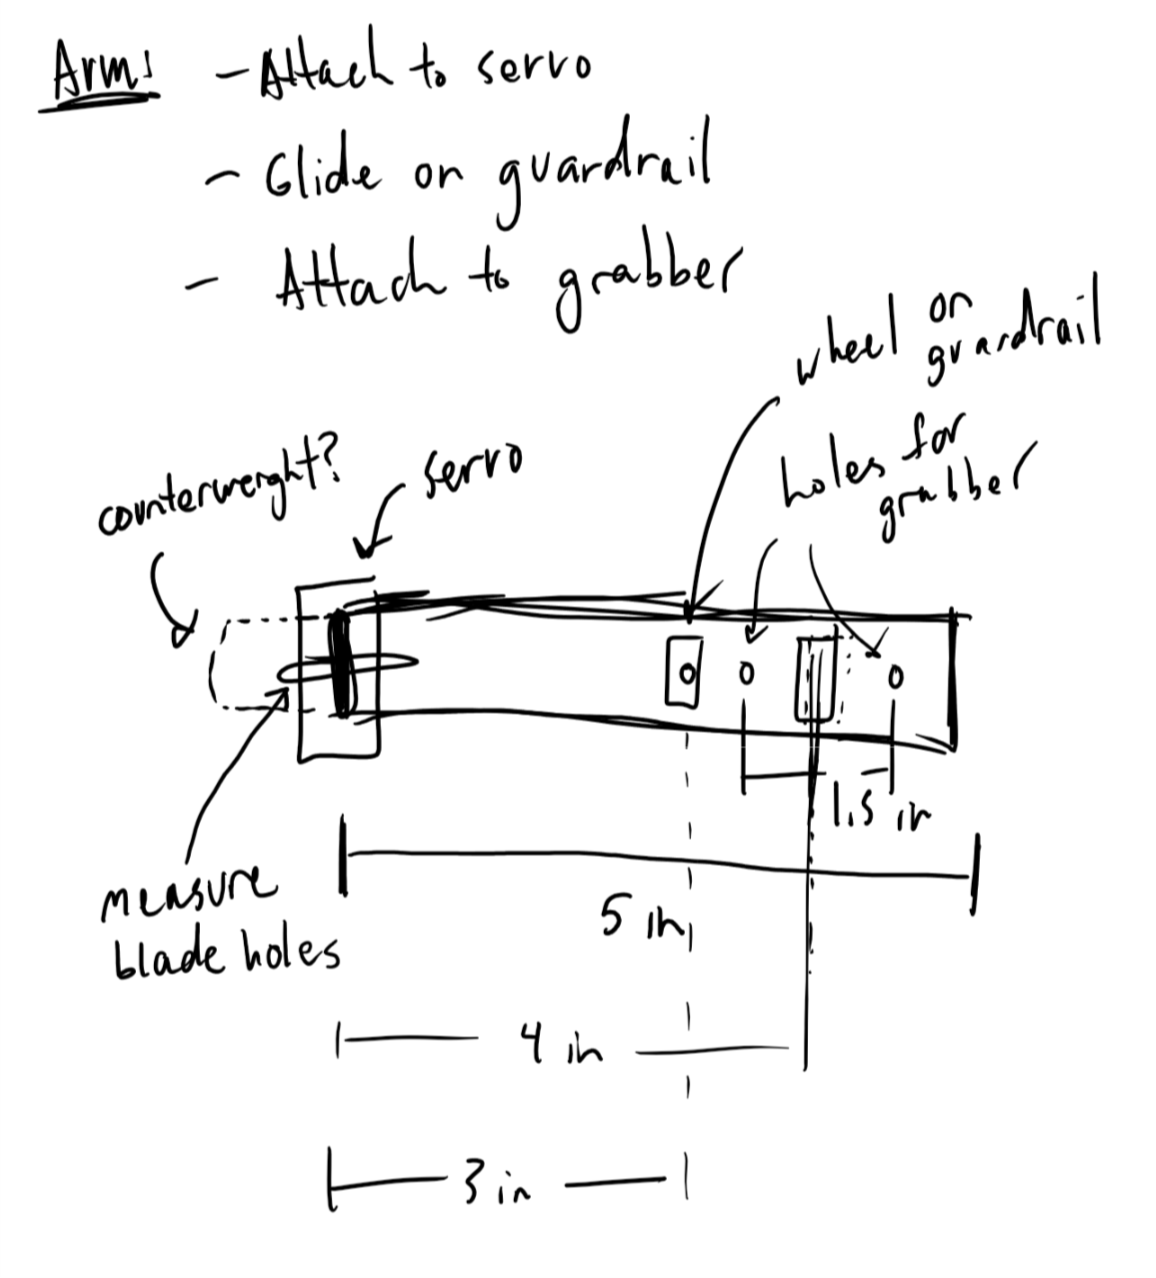 Arm: - Attach to servo
- Glide on guardrail
- Attach to grabber
wheel on
guardrail
holes for
grabber
counterweight?
servo
1.5 in
measure
blade holes
5 in
4 in
3 in